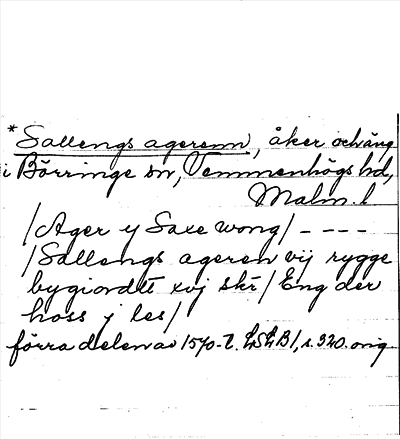 *Sallengs agerenn, åker och äng
i Börringe sn, Vemmenhögs hd,
Malm. l
/Ager y Saxe wong/ - - - -
/Sallengs ageren vij rygge
bygiordtt xvj skr/ Eng der
hoss j les/
förra delen av 1570-t. LSLB 1, s. 320. orig.